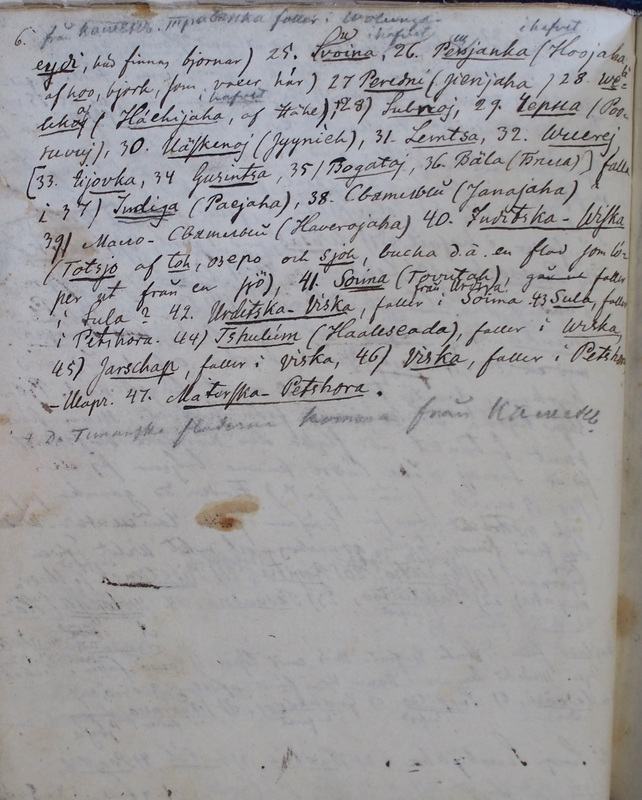 6. från Kamenn. Травянка faller i Wolonga.
i hafvet i hafvet
eydi, hvd finnas björnar) 25. Svoina, 26. Pesjanka (Hoojaha,
af hoo, björk, som växer här) 27 Peredni (Jierijaha) 28. We-
i hafvet
likoj (Hachijaha, af Hahe), 28) Sulnoj, 29. Jepsua (Por-
suvuj), 30. Wäskenoj (Jyynich), 31. Lemtsa, 32. Wuerej,
[33. Eijovka, 34 Gusintsa, 35) Bogataj, 36. Bäla (Бѣла)] falla
i 37) Indiga (Paejaha), 38. Святыый (Janajaha)
39) Мало- Святыый (Haverojaha) 40. Inditska-Wiska
(Totsjo af toh, озеро och sjoh, bucha d.ä. en flod som lö-
per ut från en sjö), 41. Soima (Tovutah), faller
från Urdyga
i Sula? 42. Urditska-Viska, faller i Soima 43 Sula, faller
i Petshora. 44) Tshulim (Haaleseada), faller i Wiska,
45) Jarschap, faller i Viska, 46) Viska, faller i Petshora
-Шар. 47. Materska-Petshora.
De Timanska floderna komma från Kamenn